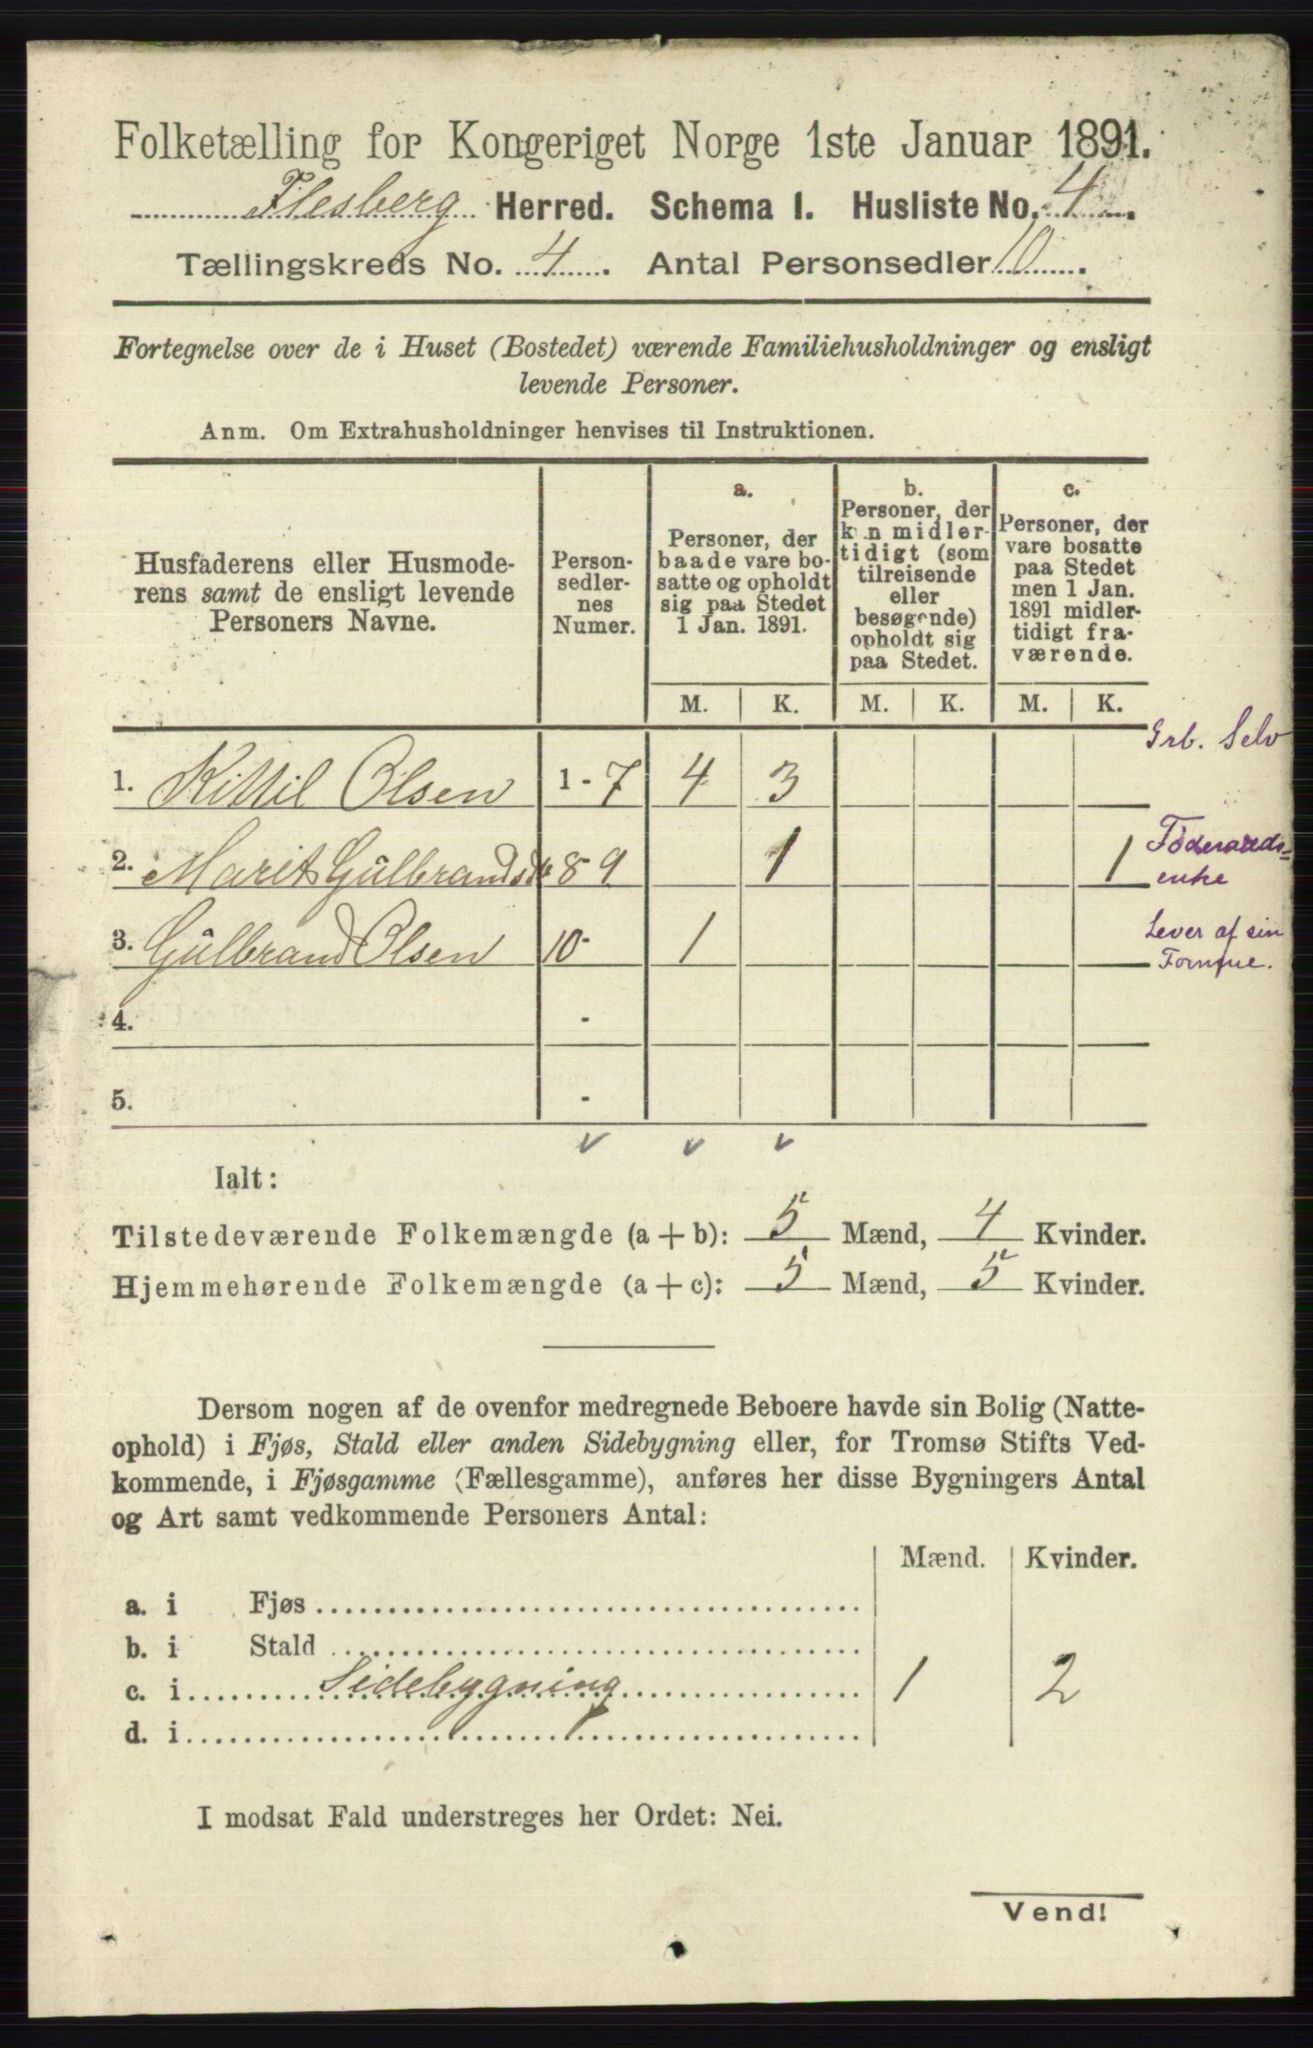 Folketælling for Kongeriget Norge 1ste Januar 1891.
Flesberg Herred. Schema I. Husliste No. 4.
Tællingskreds No. 4. Antal Personsedler 10.
Fortegnelse over de i Huset (Bostedet) værende Familiehusholdninger og ensligt
levende Personer.
Anm. Om Extrahusholdninger henvises til Instruktionen.
Husfaderens eller Husmode-
rens samt de ensligt levende
Personers Navne.
Person-
sedler-
nes
Numer.
a.
Personer, der
baade vare bo-
satte og opholdt
sig paa Stedet
1 Jan. 1891.
b.
Personer, der
kun midler-
tidigt (som
tilreisende
eller
besøgende)
opholdt sig
paa Stedet.
c.
Personer, der
vare bosatte
paa Stedet
men 1 Jan.
1891 midler-
tidigt fra-
værende.
M. K. M. K. M. K.
Grb. Selv
1. Kittil Olsen 1 - 7 4 3
2. Marit Gülbrandsdr 8-9 1 1 Föderaads-
enke
3. Gülbrand Olsen 10- 1 Lever af sin
Formue.
4. -
5. -
Ialt:
Tilstedeværende Folkemængde (a + b): 5 Mænd, 4 Kvinder.
Hjemmehørende Folkemængde (a + c): 5 Mænd, 5 Kvinder.
Dersom nogen af de ovenfor medregnede Beboere havde sin Bolig (Natte-
ophold) i Fjøs, Stald eller anden Sidebygning eller, for Tromsø Stifts Ved-
kommende, i Fjøsgamme (Fællesgamme), anføres her disse Bygningers Antal
og Art samt vedkommende Personers Antal:
Mænd. Kvinder.
a. i Fjøs
b. i Stald
c. i Sidebygning 1 2
d. i
I modsat Fald understreges her Ordet: Nei.
Vend!